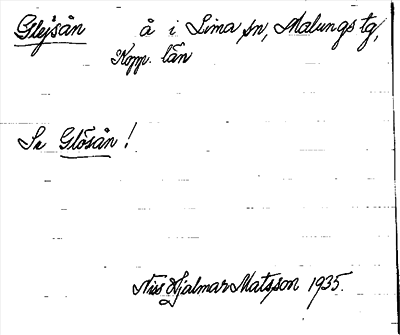 Glejsån å i Lima sn, Malungs tg,
Kopp. län
Se Glösån!
Niss Hjalmar Matsson 1935.